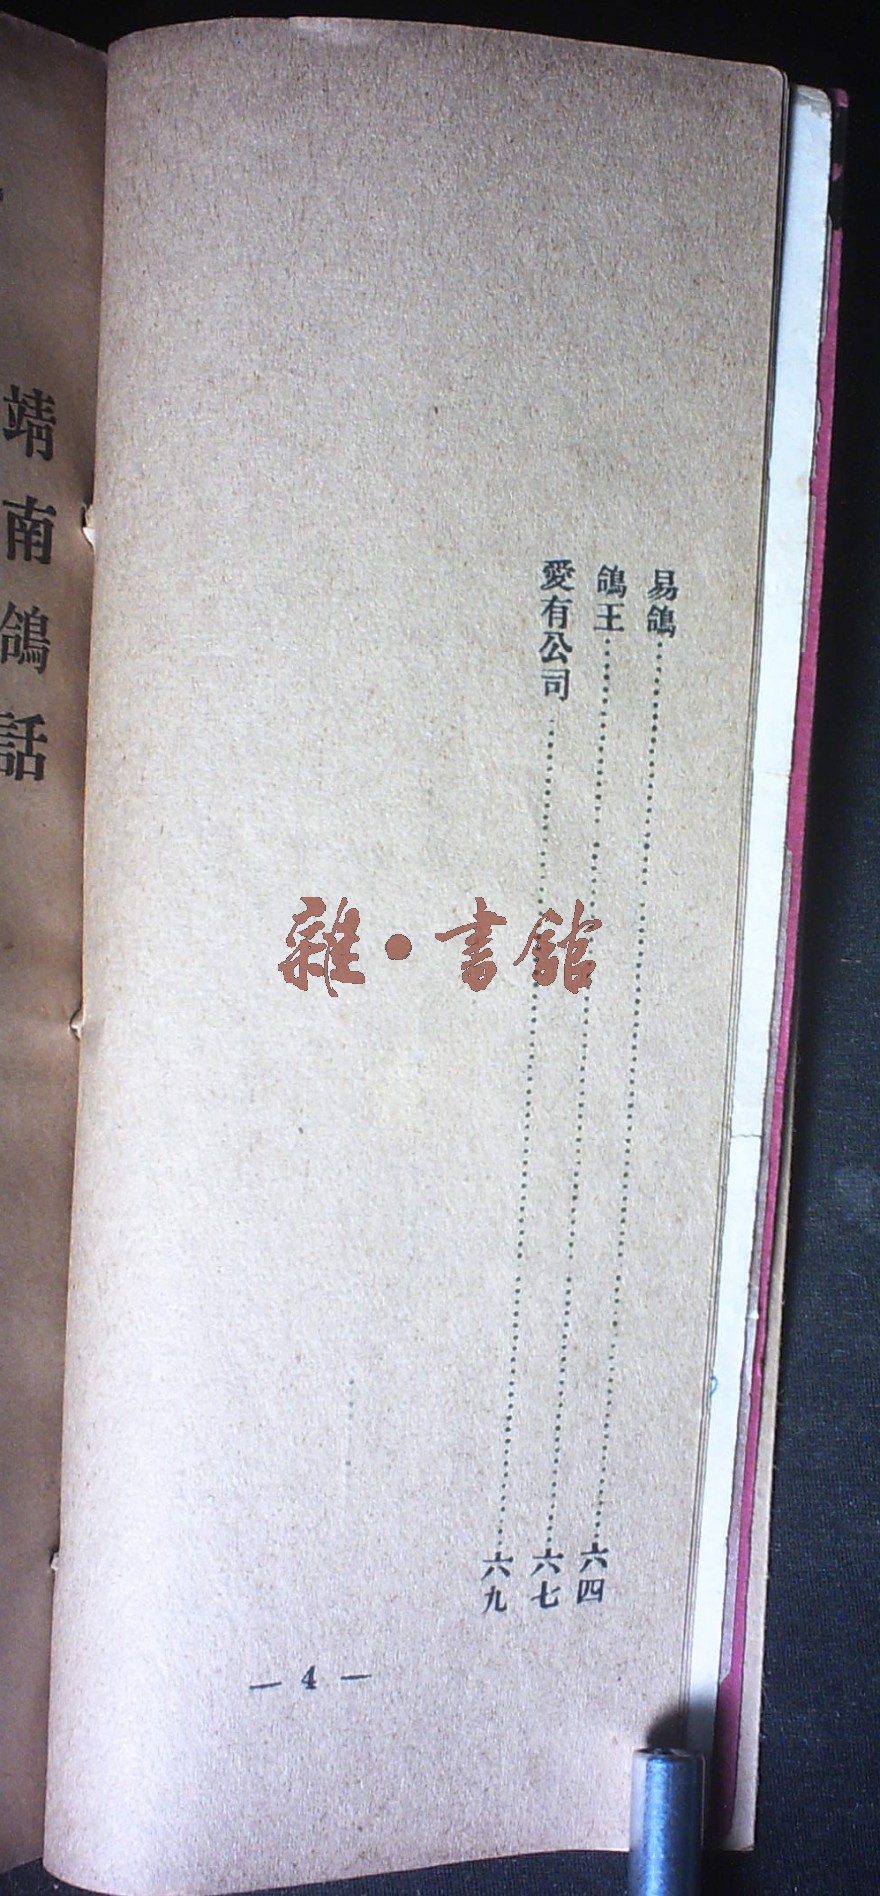 易鴿……六四
鴿王……六七
愛有公司……六九
— 4 —
靖南鴿話
雜·書館